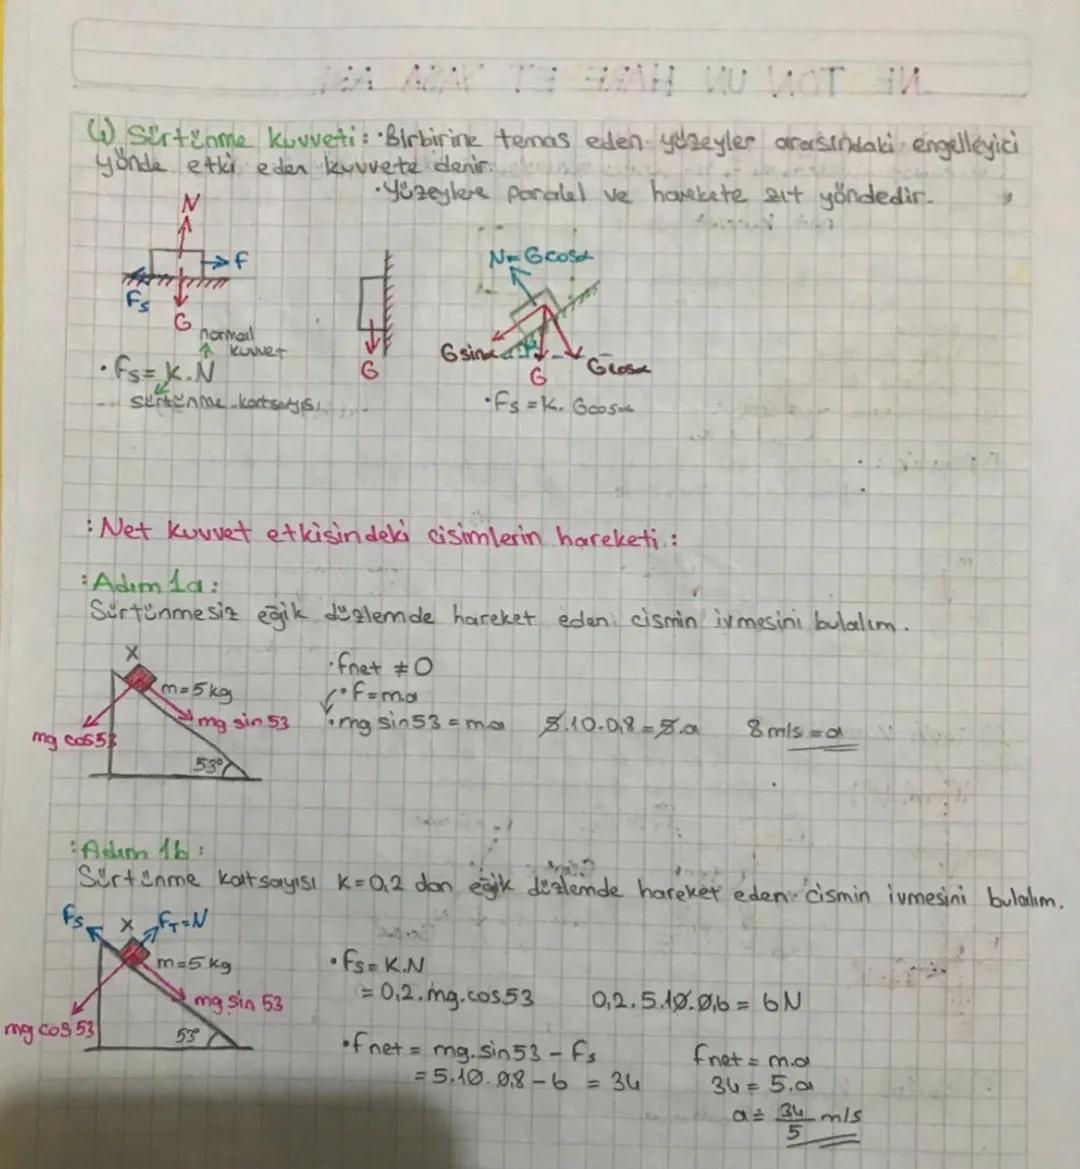 Sürtünme kuvveti: •Birbirine temas eden yüzeyler arasındaki engelleyici
yönde etki eden kuvvete denir.
•Yüzeylere paralel ve harekete zıt yöndedir.
N
F
Fs
G
normal
kuvvet
•Fs = k.N
sürtünme katsayısı
G
N=Gcosα
Gsinα
G
Gcosα
•Fs = k.Gcosα
:Net kuvvet etkisindeki cisimlerin hareketi:
:Adım 1a:
Sürtünmesiz eğik düzlemde hareket eden cismin ivmesini bulalım.
X
m=5kg
mg sin 53
mg cos53
53°
•fnet ≠ 0
•F=m.a
•mg sin53 = m.a 5.10.0,8 = 5.a 8 m/s = a
:Adım 1b:
Sürtünme katsayısı k=0,2 dan eğik düzlemde hareket eden cismin ivmesini bulalım.
Fs
X
FT=N
m=5kg
mg sin 53
mg cos53
53°
•Fs = k.N
= 0,2.mg.cos53 0,2.5.10.0,6 = 6N
•fnet = mg.sin53 - Fs fnet = m.a
= 5.10.0,8 - 6 = 34 34 = 5.a
a = 34/5 m/s